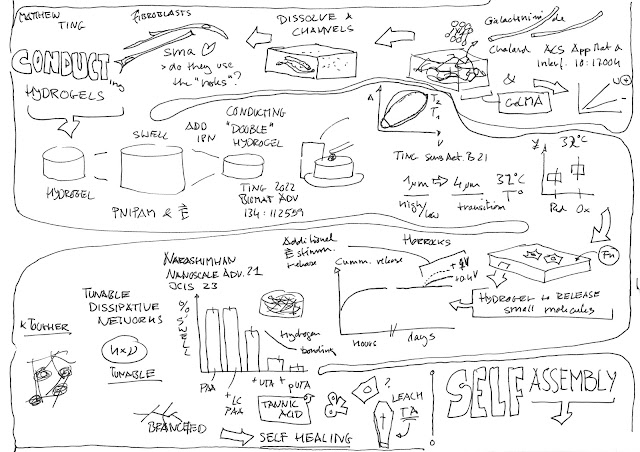 MATTHEW
TING
CONDUCTing
HYDROGELS
FIBROBLASTS
SMA ♡
> do they use
the "holes"?
DISSOLVE &
CHANNELS
Chalard ACS App Mat &
Interf. 10:17004
&
GelMA
HYDROGEL
SWELL
ADD
IPN
CONDUCTING
"DOUBLE"
HYDROGEL
PNIPAM & E
TING 2022
BIOMAT ADV
134:112559
A
V
T2
T1
TING Sens Act. B 21
1µm ⇒ 4µm 32°C
high/low transition T°
37°C
Red Ox
Fn
HYDROGEL to RELEASE
small molecules
HORROCKS
Additional
E stimm.
release
Cumm. release
HOURS // days
NARASHIMHAN
NANOSCALE ADV. 21
JCIS 23
TUNABLE
DISSIPATIVE
NETWORKS
TOUGHER
TUNABLE
BRANCHED
% SWELL
PAA
+ LC
PAA
+ UTA
+ pUTA
Hydrogen
bonding
TANNIC
ACID
SELF HEALING
?
LEACH
TA
SELF ASSEMBLY